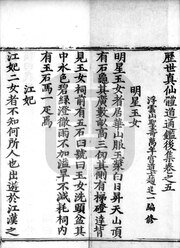 歷世真仙體道通鑑後集卷之五
浮雲山聖壽萬年宮道士趙道一編修
明星玉女
明星玉女者居華山服玉漿白日昇天山頂
有石龜其廣數畝高三仞其側有梯磴遠皆
見玉女祠前有五石臼號曰玉女洗頭盆其
中水色碧綠澄徹雨不加溢旱不減耗祠內
有玉石馬一疋焉
江妃
江妃二女者不知何所人也出遊於江漢之